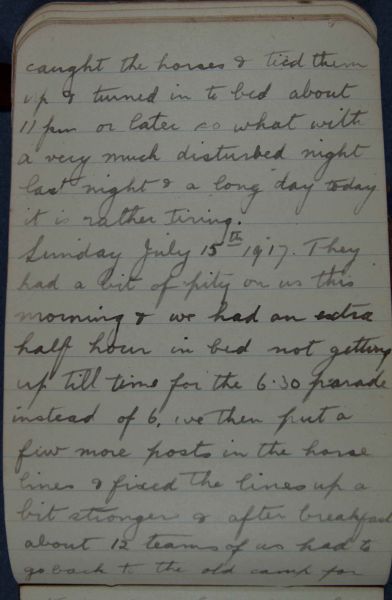 caught the horses & tied them
up & turned in to bed about
11 pm or later so what with
a very much disturbed night
last night & a long day today
it is rather tiring.
Sunday July 15th 1917. They
had a bit of pity on us this
morning & we had an extra
half hour in bed not getting
up till time for the 6.30 parade
instead of 6. we then put a
few more posts in the horse
lines & fixed the lines up a
bit stronger & after breakfast
about 12 teams of us had to
go back to the old camp for